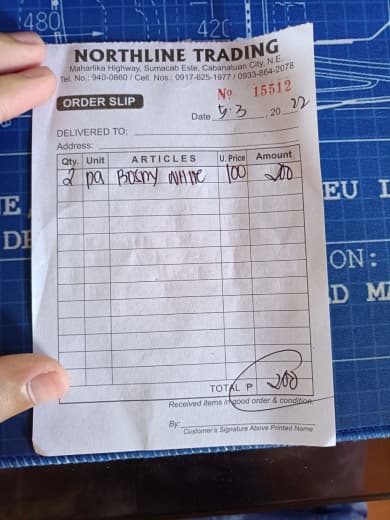 480
420
NORTHLINE TRADING
Maharlika Highway, Sumacab Este, Cabanatuan City, N.E.
Tel. No.: 940-0860 / Cell. Nos.: 0917-625-1977 / 0933-864-2078
ORDER SLIP
No 15512
Date 5-3, 2022
DELIVERED TO:
Address:
Qty. Unit ARTICLES U. Price Amount
2 100 200
TOTAL P 200
Received items in good order & condition,
By:
Customer's Signature Above Printed Name
EU L
ON:
D MA